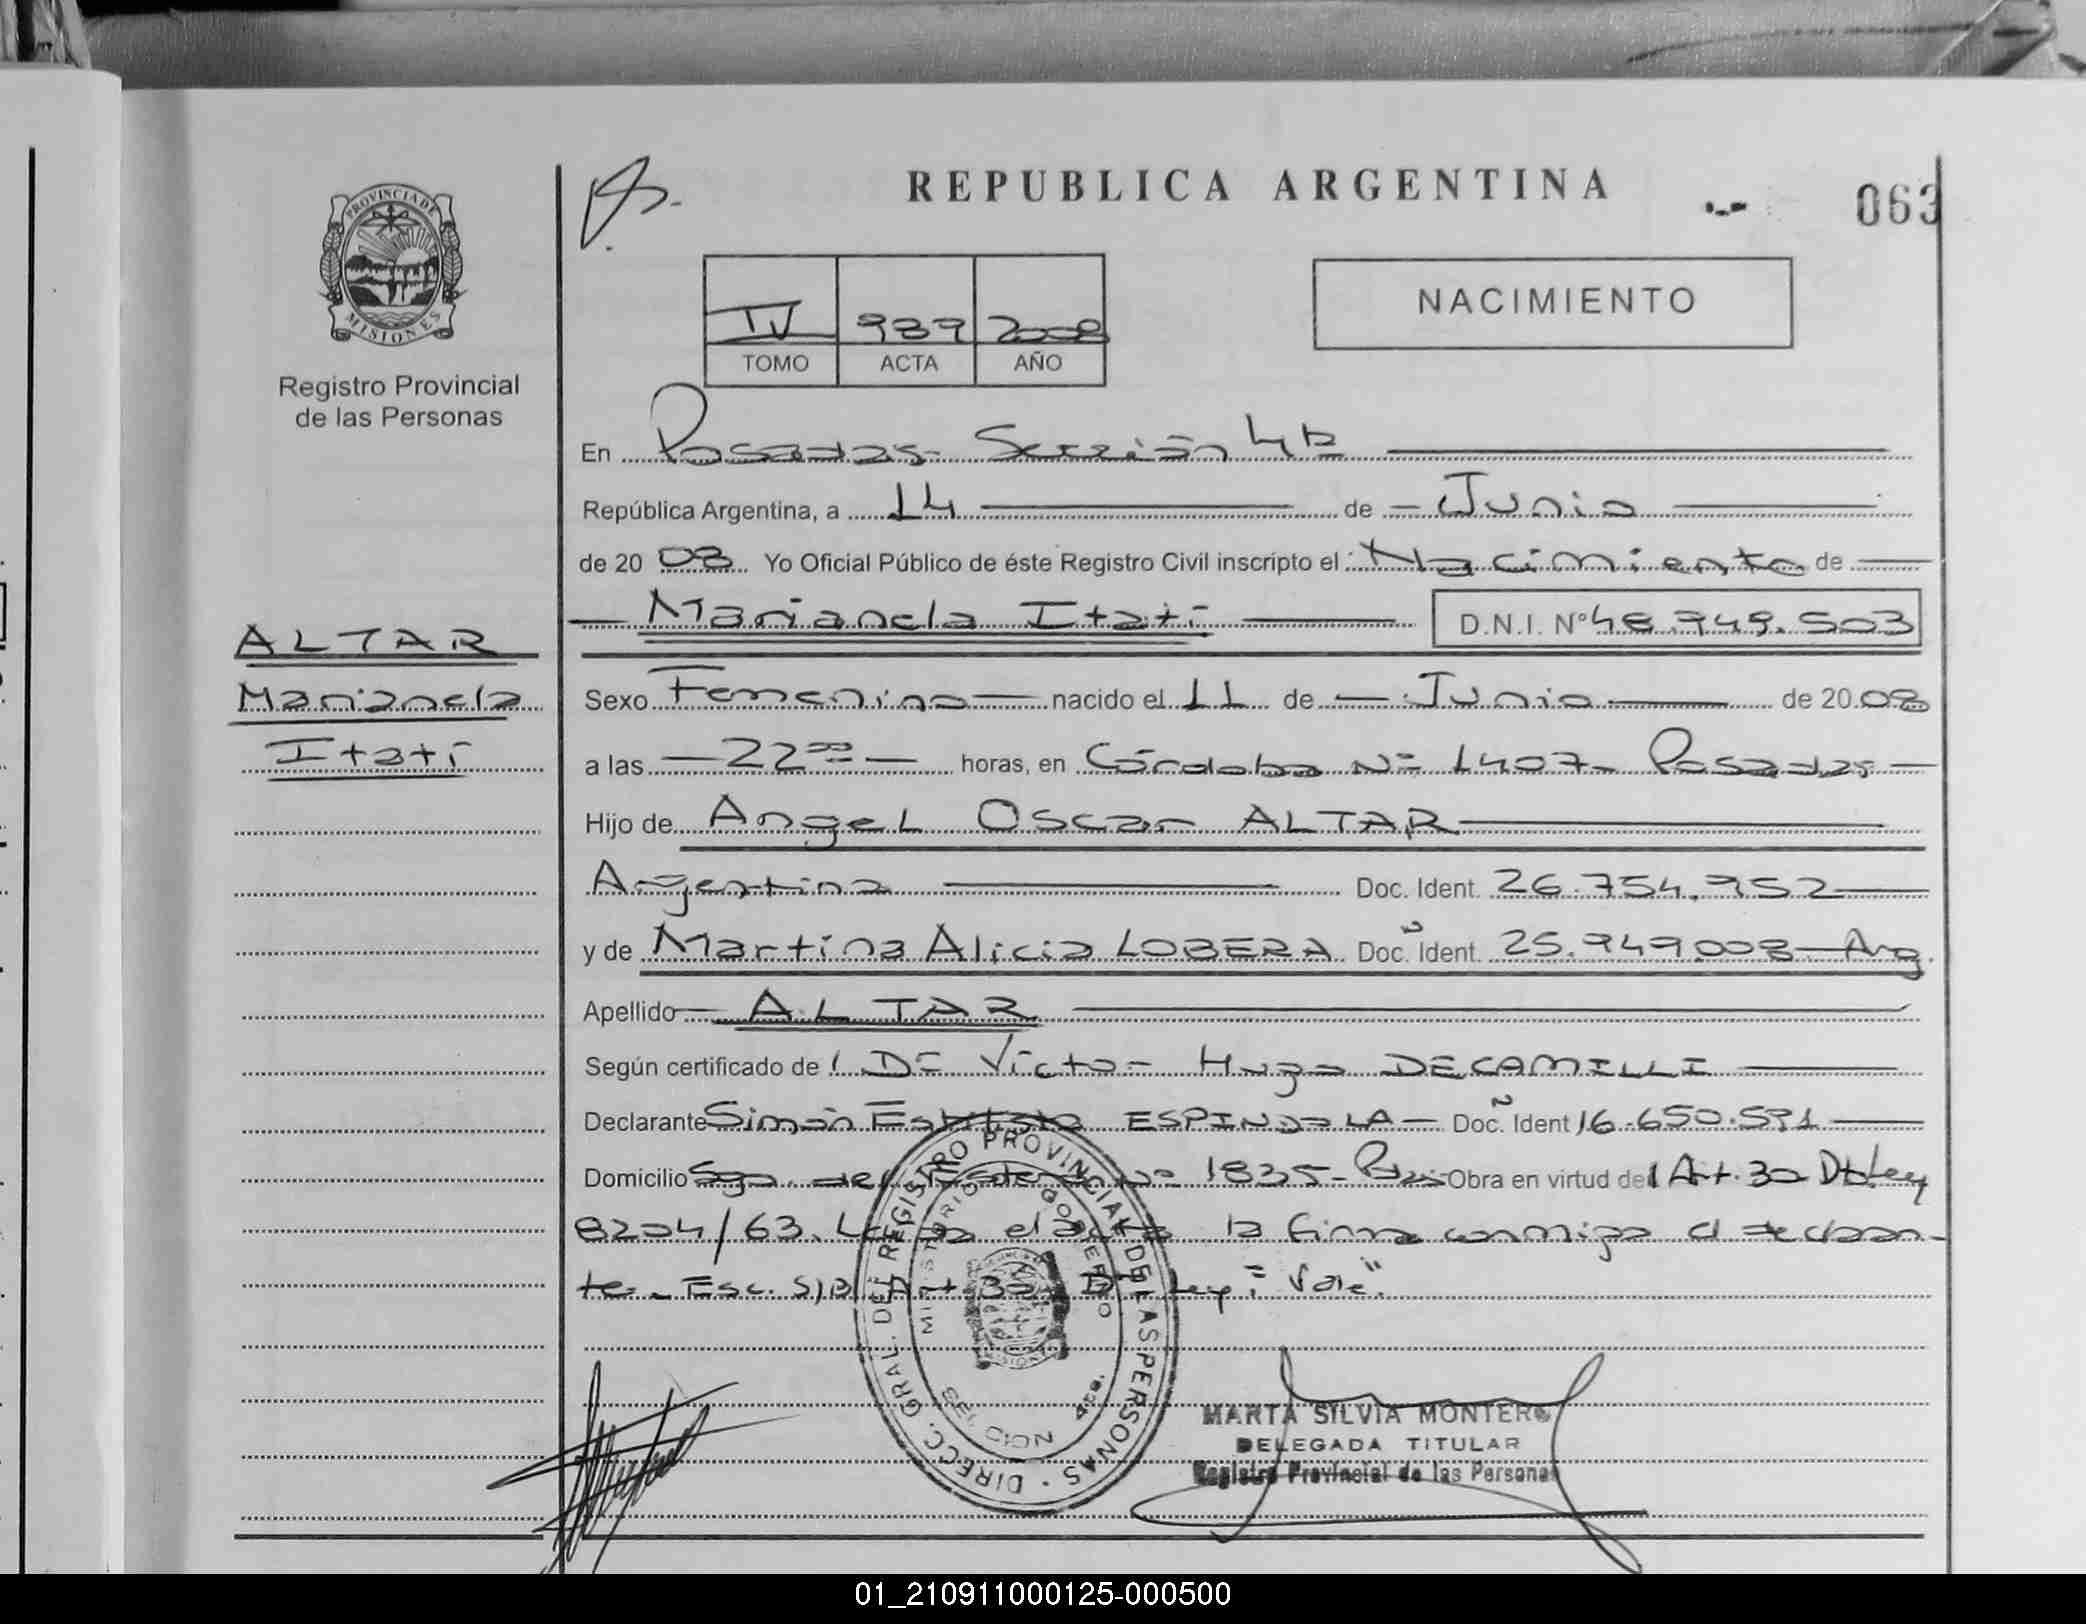 REPUBLICA ARGENTINA
063
PROVINCIA DE
MISIONES
Registro Provincial
de las Personas
IV 989 2008
TOMO ACTA AÑO
NACIMIENTO
En Posadas - Sección 4ta
República Argentina, a 14 de Junio
de 2008 Yo Oficial Público de éste Registro Civil inscripto el Nacimiento de
Marianela Itatí D.N.I. Nº 48.749.503
ALTAR
Marianela
Itatí
Sexo Femenino nacido el 11 de Junio de 2008
a las 22 00 horas, en Córdoba Nº 1407 - Posadas
Hijo de Angel Oscar ALTAR
Argentina Doc. Ident. 26.754.952
y de Martina Alicia LOBERA Doc. Ident. 25.949.008 - Arg.
Apellido ALTAR
Según certificado de l Dr Victor Hugo DECAMILLI
Declarante Simón ESPINDOLA Doc. Ident 16.650.591
Domicilio Sgo. del Estero Nº 1835 - Pdas Obra en virtud del Art. 30 Dto Ley
8204/63. Leída el acta la firma conmigo el declaran-
te. Esc. S/B Art 30 Dto Ley: "Vale".
DIRECC. GRAL. DEL REGISTRO PROVINCIAL DE LAS PERSONAS
MINISTERIO DE GOBIERNO
SECCION 4ta.
MARTA SILVIA MONTERO
DELEGADA TITULAR
Registro Provincial de las Personas
01_210911000125-000500